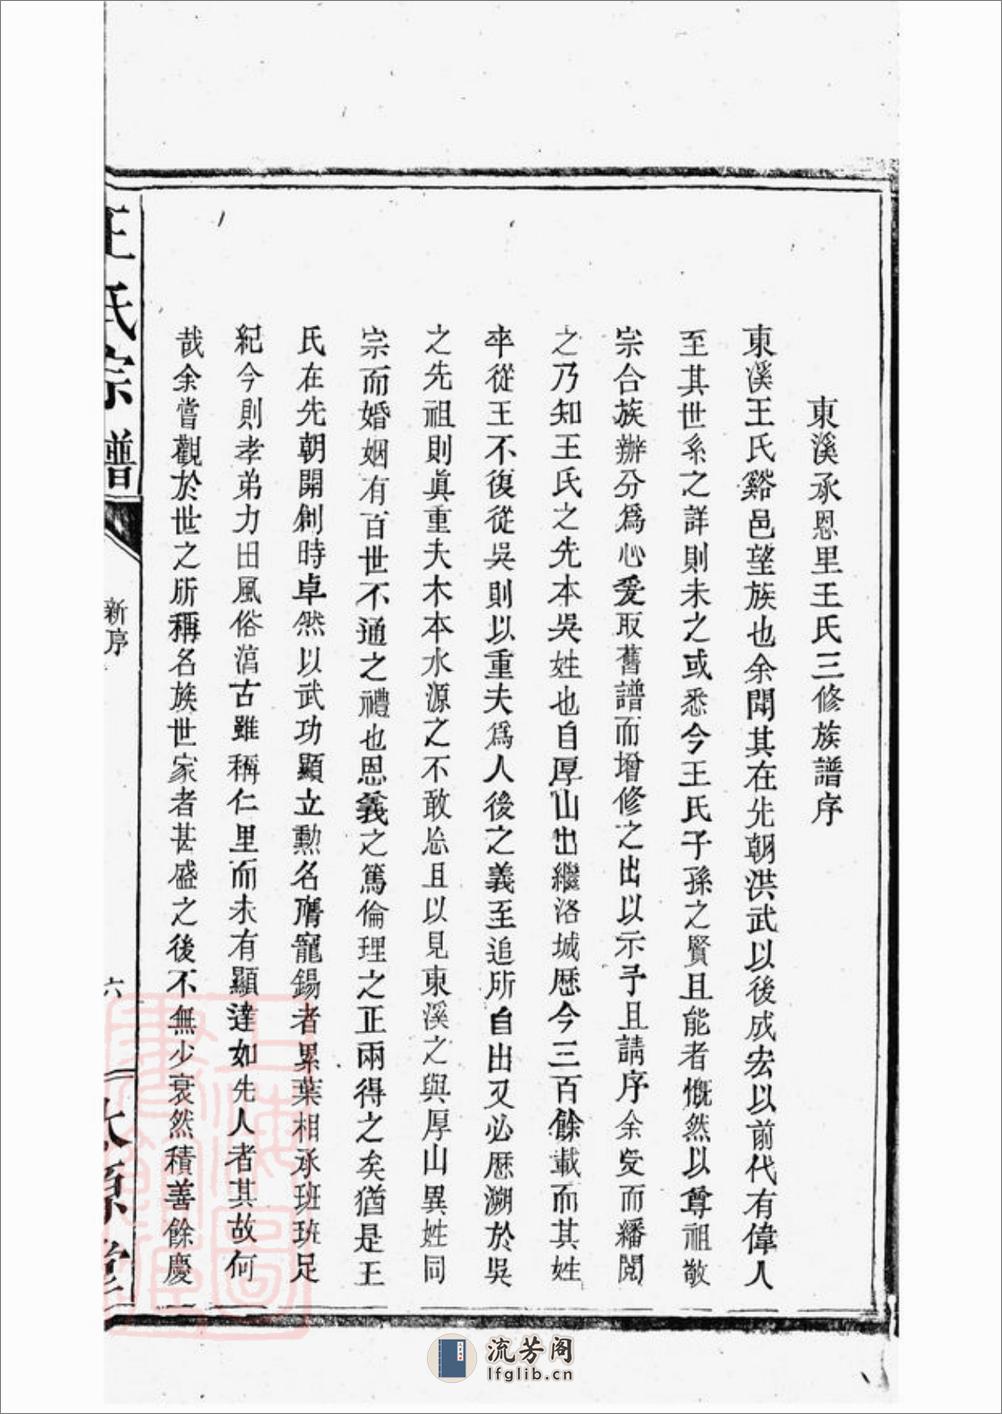 東溪承恩里王氏三修族譜序
東溪王氏谿邑望族也余聞其在先朝洪武以後成宏以前代有偉人
至其世系之詳則未之或悉今王氏子孫之賢且能者慨然以尊祖敬
宗合族辦分爲心爰取舊譜而增修之出以示予且請序余受而繙閱
之乃知王氏之先本吳姓也自厚山出繼洛城歷今三百餘載而其姓
卒從王不復從吳則以重夫爲人後之義至追所自出又必歷溯於吳
之先祖則眞重夫木本水源之不敢忘且以見東溪之與厚山異姓同
宗而婚姻有百世不通之禮也恩義之篤倫理之正兩得之矣猶是王
氏在先朝開創時卓然以武功顯立勳名膺寵錫者累葉相承班班足
紀今則孝弟力田風俗湻古雖稱仁里而未有顯達如先人者其故何
哉余嘗觀於世之所稱名族世家者甚盛之後不無少衰然積善餘慶
王氏宗譜
新序
六
本源堂
上海圖書館藏
流芳阁
lfglib.cn